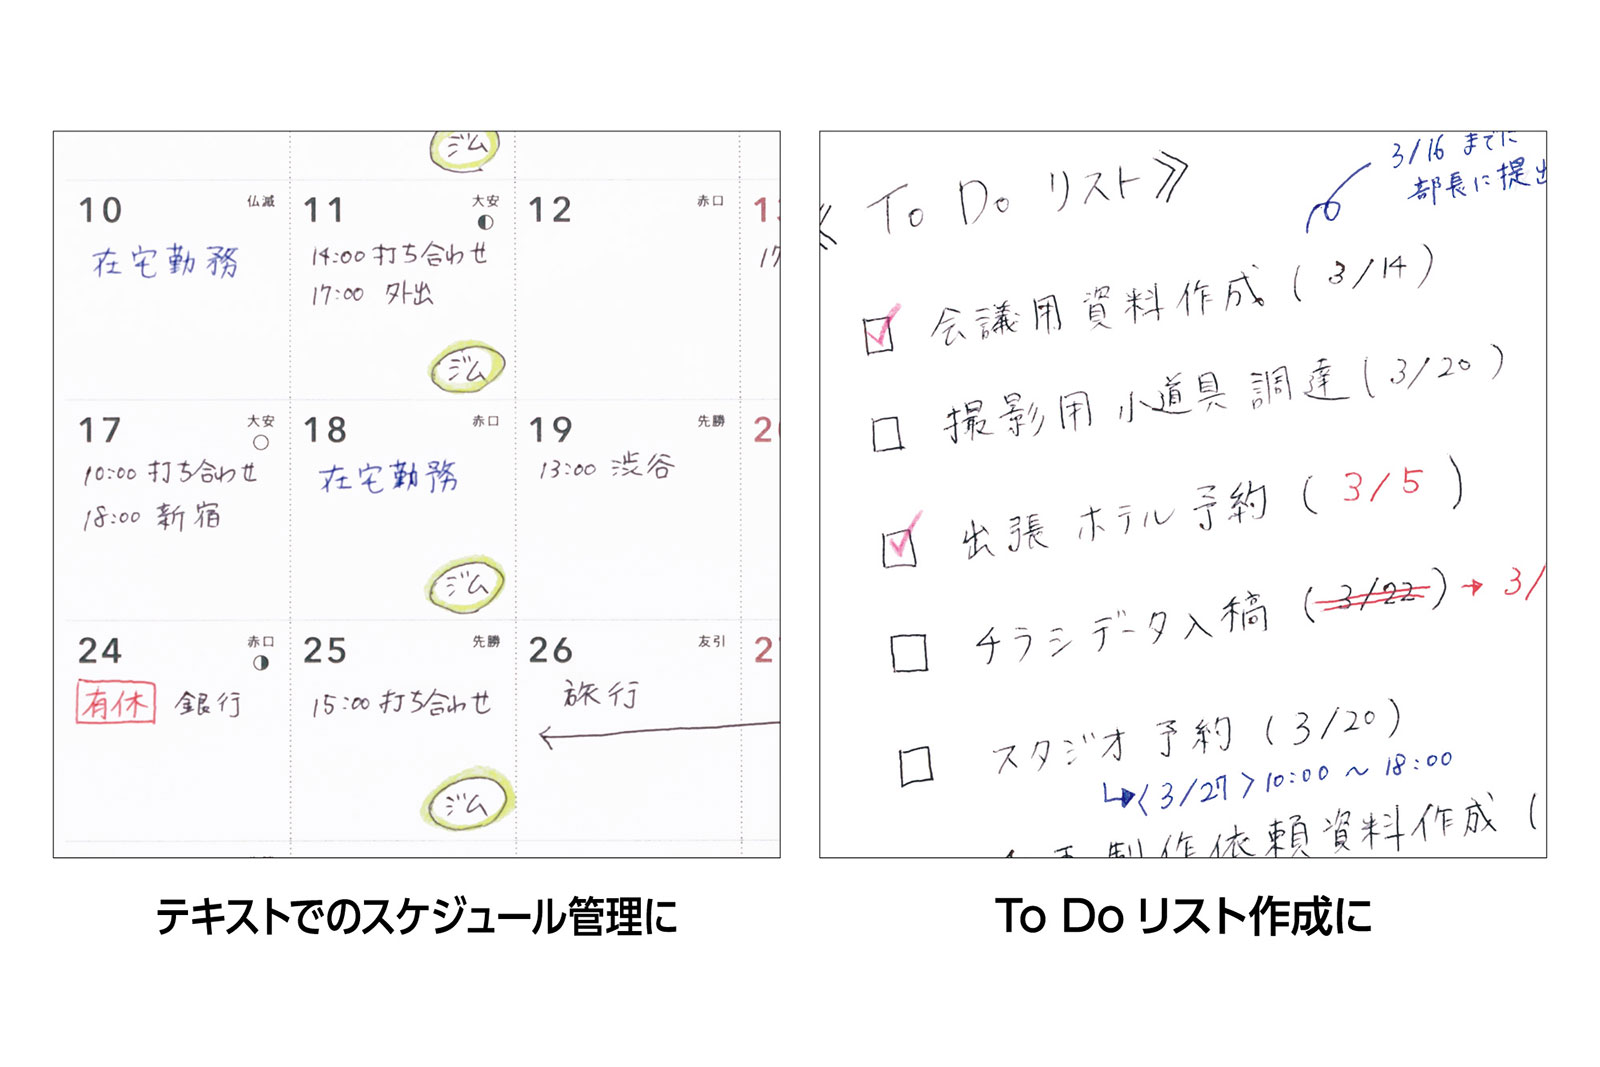 ジム
10 仏滅
在宅勤務
11 大安
14:00 打ち合わせ
17:00 外出
ジム
12 赤口
17 大安
10:00 打ち合わせ
18:00 新宿
18 赤口
在宅勤務
ジム
19 先勝
13:00 渋谷
24 赤口
有休 銀行
25 先勝
15:00 打ち合わせ
ジム
26 友引
旅行
テキストでのスケジュール管理に
3/16 までに
部長に提出
《 To Do リスト》
会議用資料作成 (3/14)
撮影用小道具調達 (3/20)
出張ホテル予約 (3/5)
チラシデータ入稿 (3/22) → 3/
スタジオ予約 (3/20)
↳〈3/27〉10:00 ~ 18:00
制作依頼資料作成 (
To Do リスト作成に